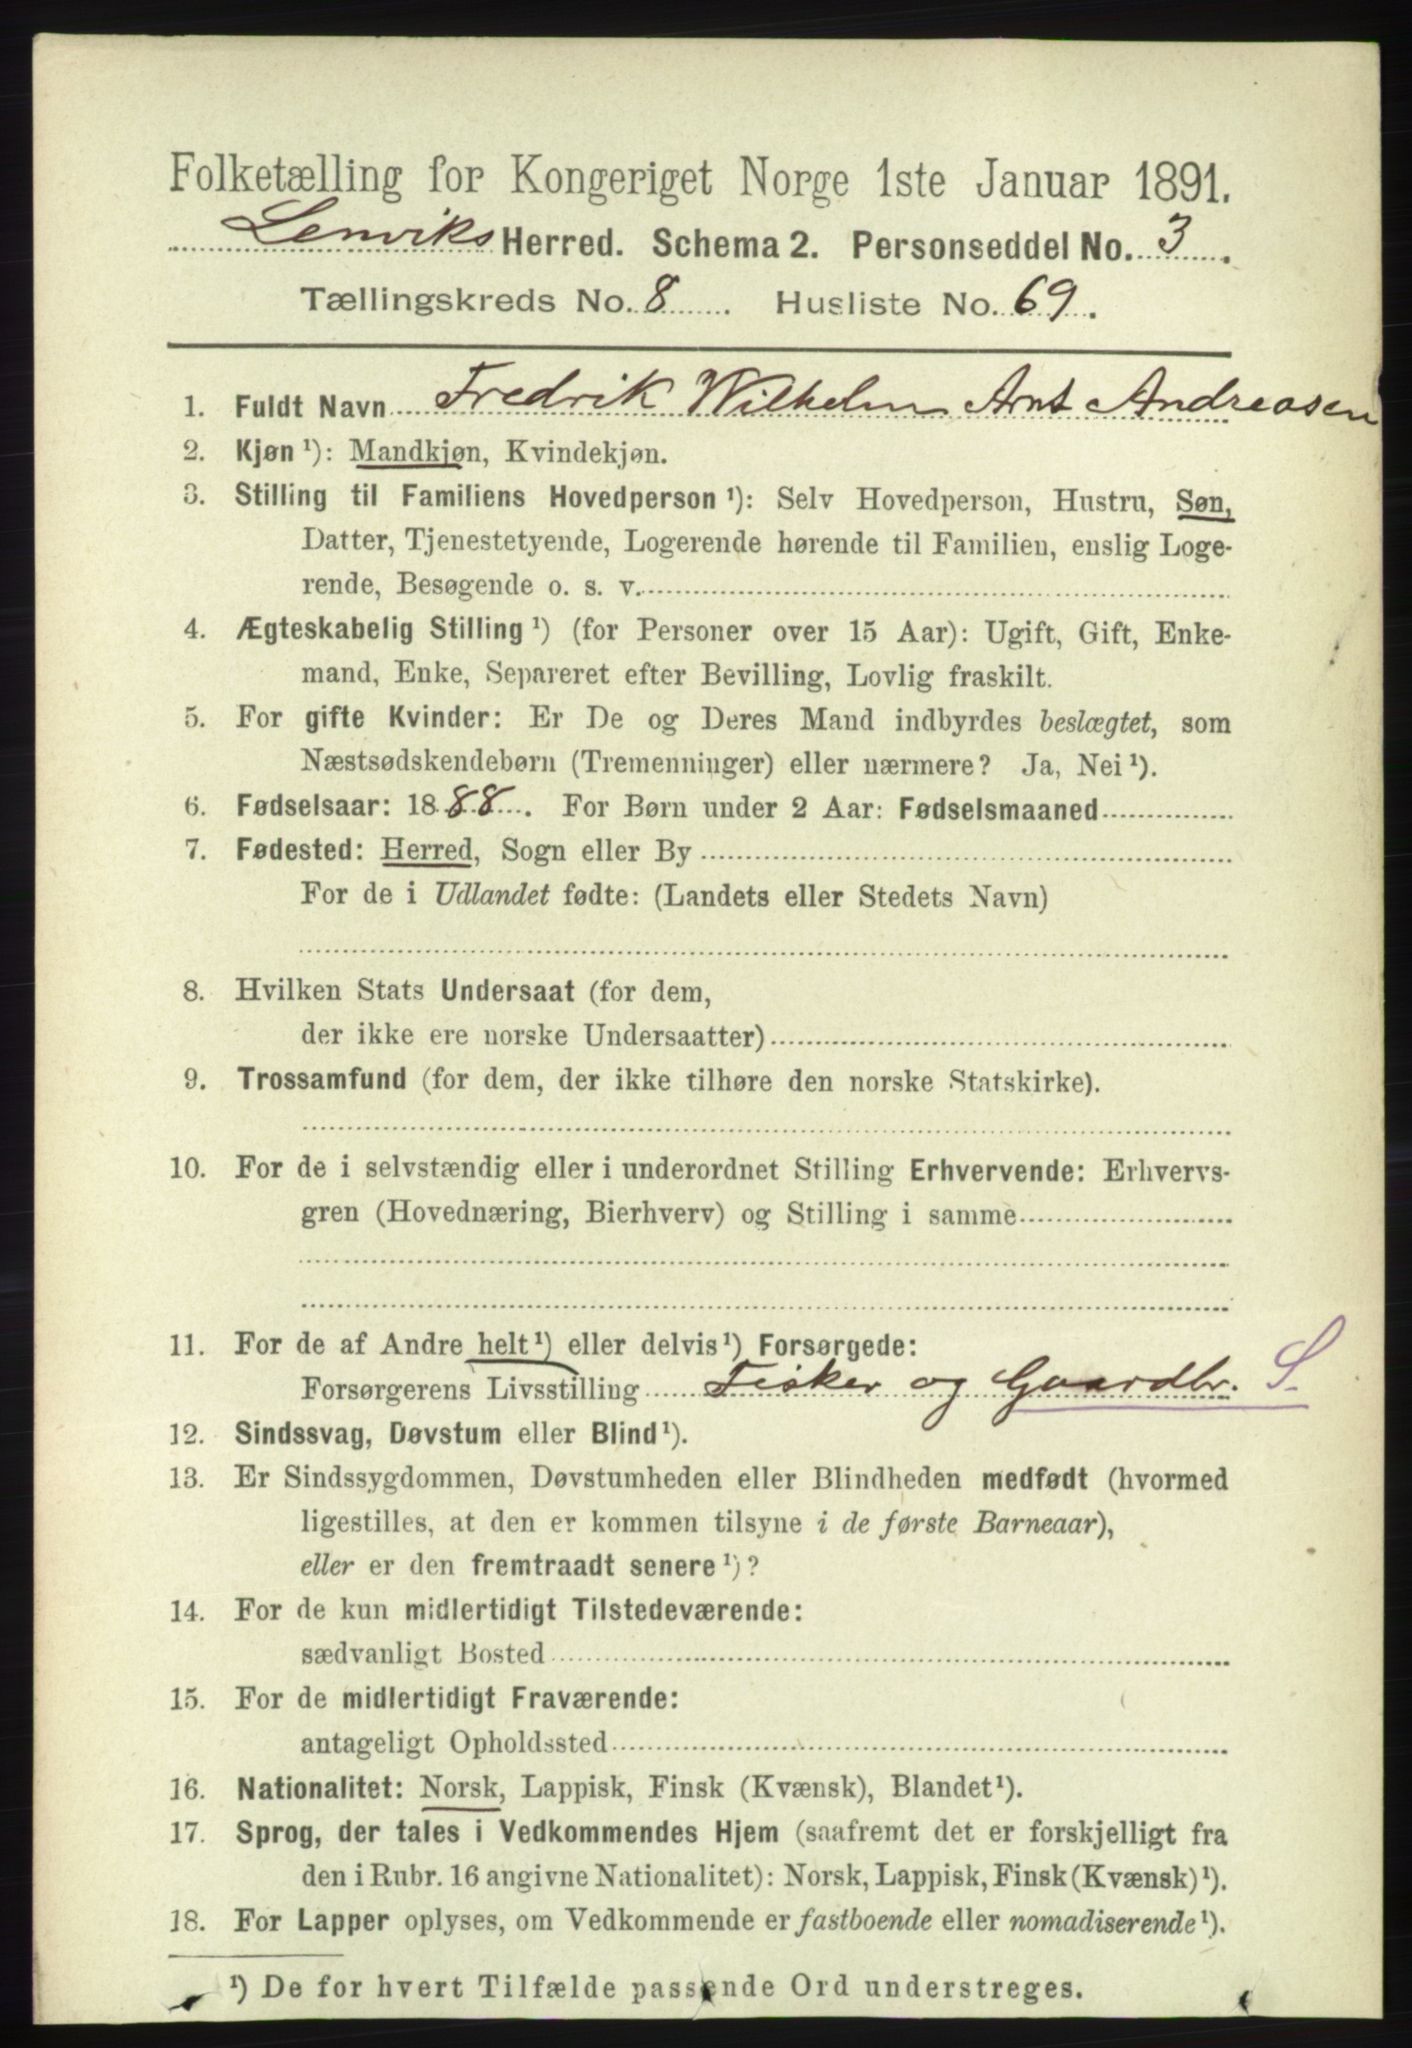 Folketælling for Kongeriget Norge 1ste Januar 1891.
Lenviks Herred. Schema 2. Personseddel No. 3.
Tællingskreds No. 8. Husliste No. 69.
1. Fuldt Navn Fredrik Wilhelm Arnt Andreasen
2. Kjøn¹): Mandkjøn, Kvindekjøn.
3. Stilling til Familiens Hovedperson¹): Selv Hovedperson, Hustru, Søn,
Datter, Tjenestetyende, Logerende hørende til Familien, enslig Loge-
rende, Besøgende o. s. v.
4. Ægteskabelig Stilling¹) (for Personer over 15 Aar): Ugift, Gift, Enke-
mand, Enke, Separeret efter Bevilling, Lovlig fraskilt.
5. For gifte Kvinder: Er De og Deres Mand indbyrdes beslægtet, som
Næstsødskendebørn (Tremenninger) eller nærmere? Ja, Nei¹).
6. Fødselsaar: 1888. For Børn under 2 Aar: Fødselsmaaned
7. Fødested: Herred, Sogn eller By
For de i Udlandet fødte: (Landets eller Stedets Navn)
8. Hvilken Stats Undersaat (for dem,
der ikke ere norske Undersaatter)
9. Trossamfund (for dem, der ikke tilhøre den norske Statskirke).
10. For de i selvstændig eller i underordnet Stilling Erhvervende: Erhvervs-
gren (Hovednæring, Bierhverv) og Stilling i samme
11. For de af Andre helt¹) eller delvis¹) Forsørgede:
Forsørgerens Livsstilling Fisker og Gaardbr. S.
12. Sindssvag, Døvstum eller Blind¹).
13. Er Sindssygdommen, Døvstumheden eller Blindheden medfødt (hvormed
ligestilles, at den er kommen tilsyne i de første Barneaar),
eller er den fremtraadt senere¹)?
14. For de kun midlertidigt Tilstedeværende:
sædvanligt Bosted
15. For de midlertidigt Fraværende:
antageligt Opholdssted
16. Nationalitet: Norsk, Lappisk, Finsk (Kvænsk), Blandet¹).
17. Sprog, der tales i Vedkommendes Hjem (saafremt det er forskjelligt fra
den i Rubr. 16 angivne Nationalitet): Norsk, Lappisk, Finsk (Kvænsk)¹).
18. For Lapper oplyses, om Vedkommende er fastboende eller nomadiserende¹).
¹) De for hvert Tilfælde passende Ord understreges.